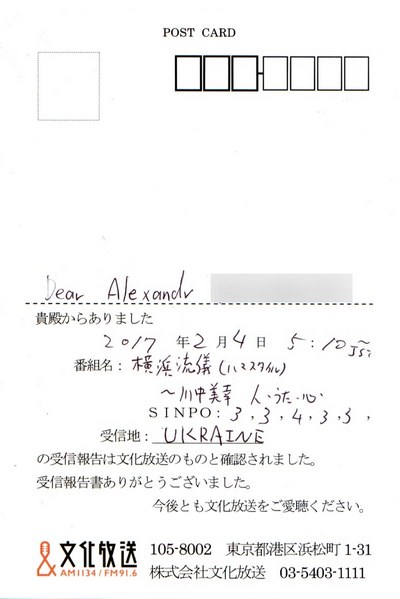 POST CARD
Dear Alexandr
貴殿からありました
2017 年 2 月 4 日 5:10〜
番組名: 横浜流儀(ハマスタイル)
〜川中美幸 人・うた・心
SINPO: 3, 3, 4, 3, 3,
受信地: UKRAINE
の受信報告は文化放送のものと確認されました。
受信報告書ありがとうございました。
今後とも文化放送をご愛聴ください。
文化放送 105-8002 東京都港区浜松町 1-31
AM1134/FM91.6 株式会社文化放送 03-5403-1111